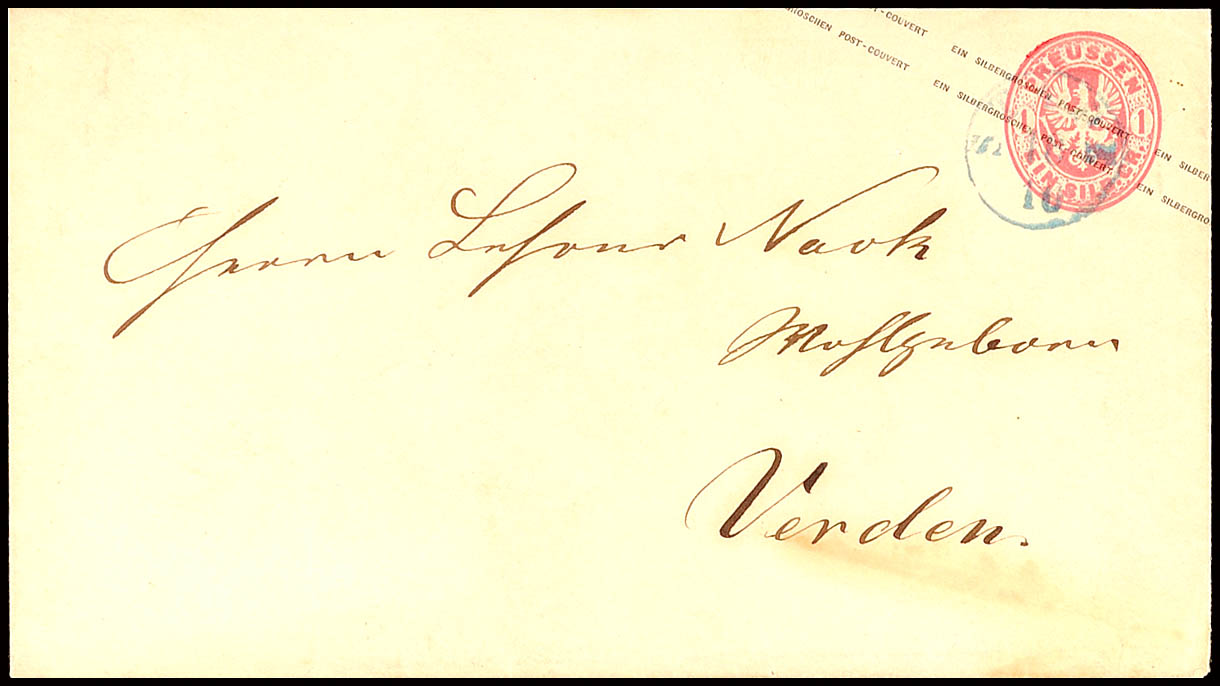 GROSCHEN POST-COUVERT EIN SILBERGROSCHEN POST-COUVERT EIN SILBER
POST-COUVERT EIN SILBERGROSCHEN POST-COUVERT EIN SILBERGRO
PREUSSEN
1 1
EIN SILB.GR.
10
Herrn Lehrer Nack
Wohlgeboren
Verden.